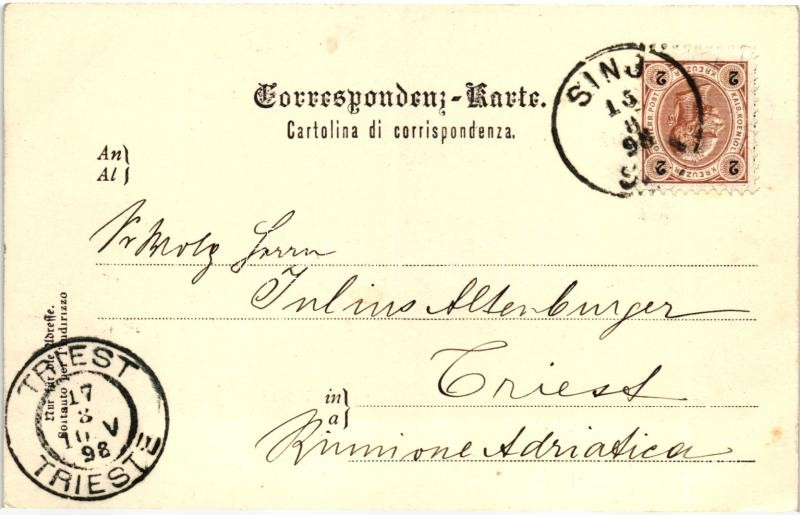 Correspondenz-Karte.
Cartolina di corrispondenza.
SINJ
15
8
98
2 KREUZER 2
KAIS. KOENIGL.
2 KREUZER 2
An
Al
Herrn
Julius Altenburger
in
a
Triest
Riunione Adriatica
Nur für die Adresse.
Soltanto per l'indirizzo
TRIEST
17
8
10 V
98
TRIESTE